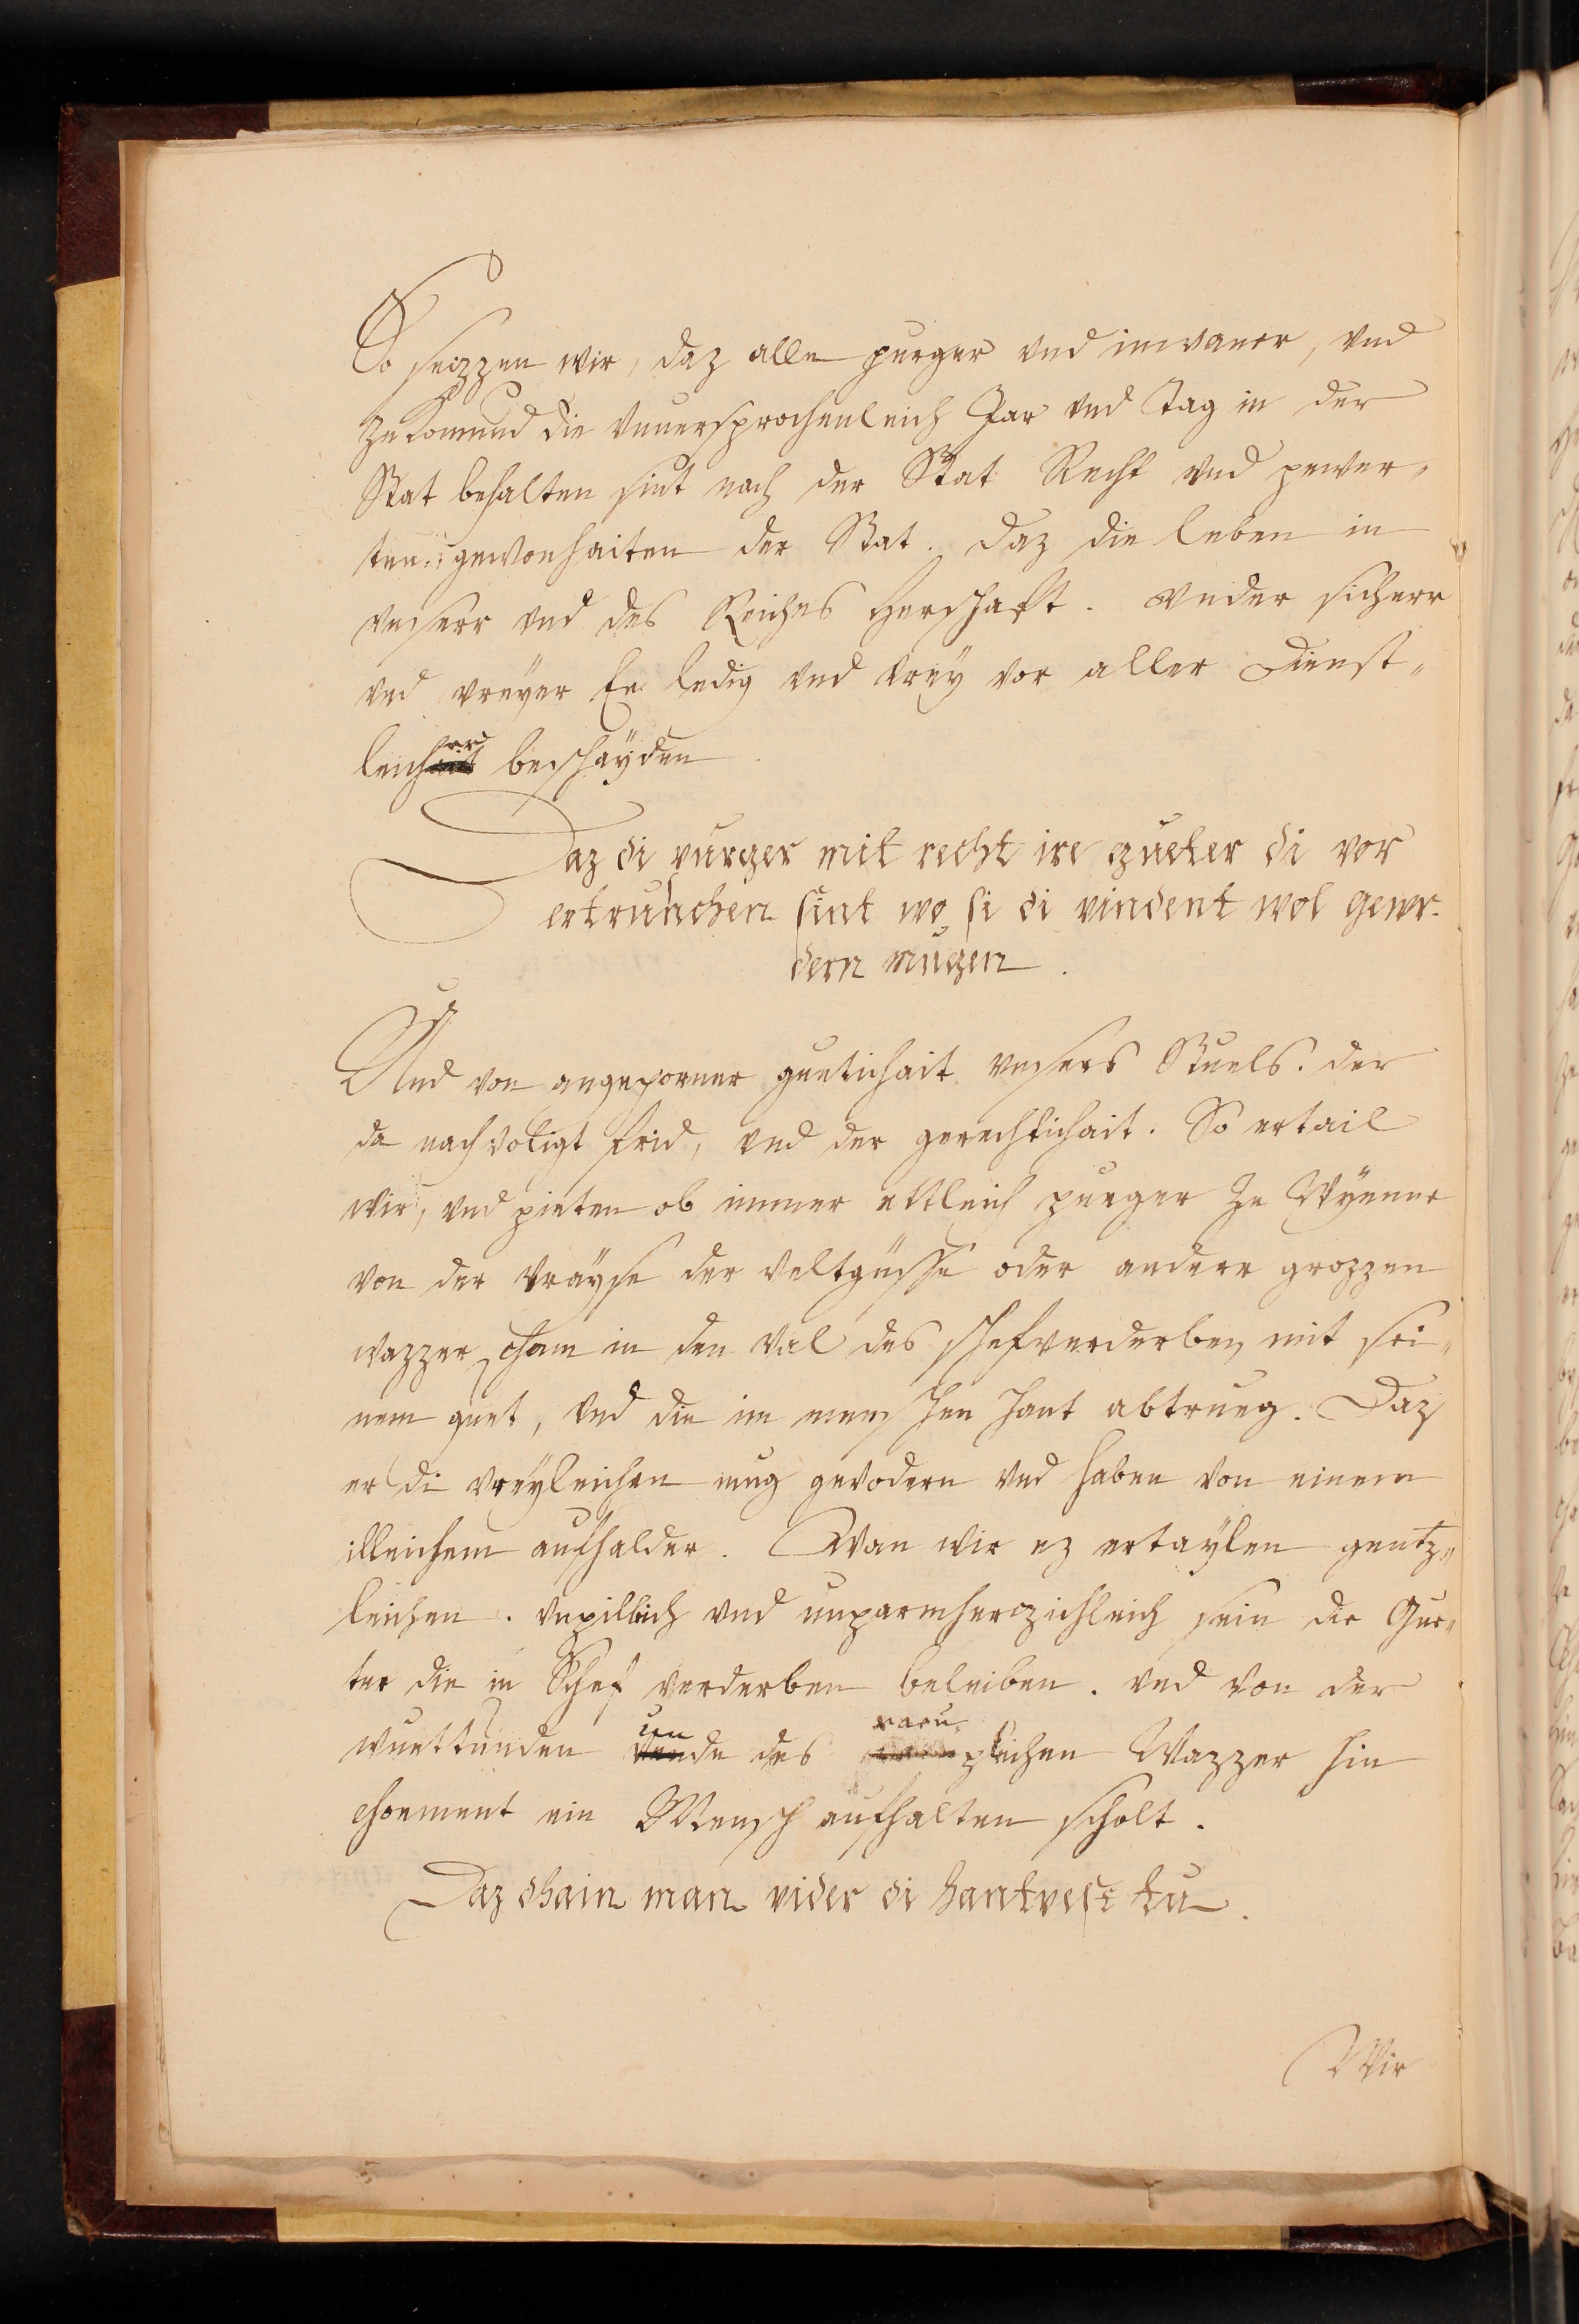 So seczzen wir, daz alle purger vnd inwaner, vnd
zukomund die vnuersprochenleich Jar vnd Tag in der
Stat behalten sint nach der Stat Recht vnd pewer„
ten gewonhaiten der Stat. Daz die leben in
vnserr vnd des Reiches Herschaft. vnder sicherr
vnd vreyer Er ledig vnd vrey vor aller Dienst„
leicher beschayden
Daz di purger mit recht ire gueter di vor
ertrunchen sint wo si di vindent wol gevor-
dern mugen.
Und von angeporner guetichait vnsers Stuels. der
da nach voligt frid, vnd der gerechtichait. So ertail
wir, vnd pieten ob immer ettleich purger ze Wyenne
von der vrayse der veltgüsse oder anderr grozzen
wazzer cham in den val des schefverderben mit sei„
nem guet, vnd die im menschen hant abtrueg. Daz
er di vreyleichen mug gevodern vnd haben von einem
illeichem aufhalder. Wan wir ez ertaylen gentz„
leichen. vnpilleich vnd vnparmherczichleich sein die Gue„
ter die in Schef verderben beleiben. vnd von der
wuettunden unde des raupleichen Wazzer hin
choement ein Mensch aufhalten scholt.
Daz chain man vider di hantvest tu.
Wir